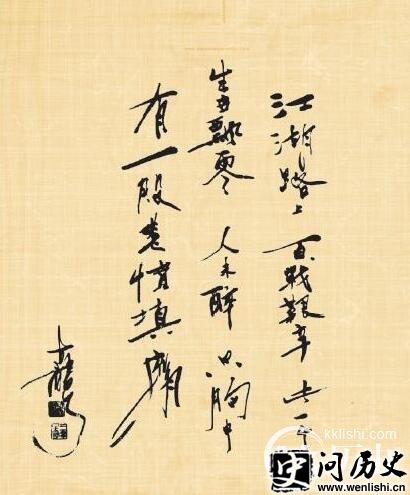 江湖路上 百戰艱辛 一
生 飄零 人未醉 只胸中
有一段悲憤填膺
古龍
kklishi.com
问历史
www.wenlishi.cn